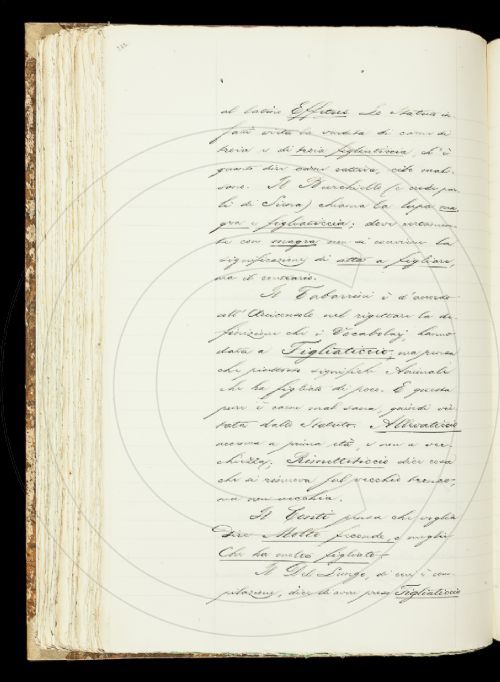 al latino Effetus. Lo Statuto in
fatti vieta la vendita di carne di
troia e di troia figliaticcia, ch'è
quanto dire carne cattiva, cibo mal
sano. Il Burchiello (e credo par
li di Siena) chiama la lupa ma
gra e figliaticcia; dove certamen
te con magra non si conviene la
significazione di atta a figliare,
ma il contrario.
Il Tabarrini è d'accordo
coll' Arciconsolo nel rigettare la de
finizione che i Vocabolarj hanno
data a Figliaticcio, ma pensa
che piuttosto significhi Animale
che ha figliato di poco. E questa
pure è carne mal sana, quindi vie
tata dallo Statuto. Allevaticcio
accenna a prima età, e non a vec
chiezza, Rimettiticcio dice cosa
che si rinnova sul vecchio tronco,
ma non vecchia.
Il Conti pensa che voglia
Dire Molto feconda, o meglio
Che ha molto figliato.
Il Del Lungo, di cui è com
pilazione, dice di aver preso Figliaticcio